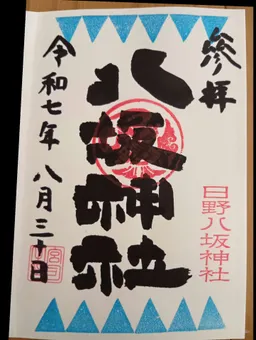 参拝
八坂神社
日野八坂神社
令和七年 八月三十日
宮司